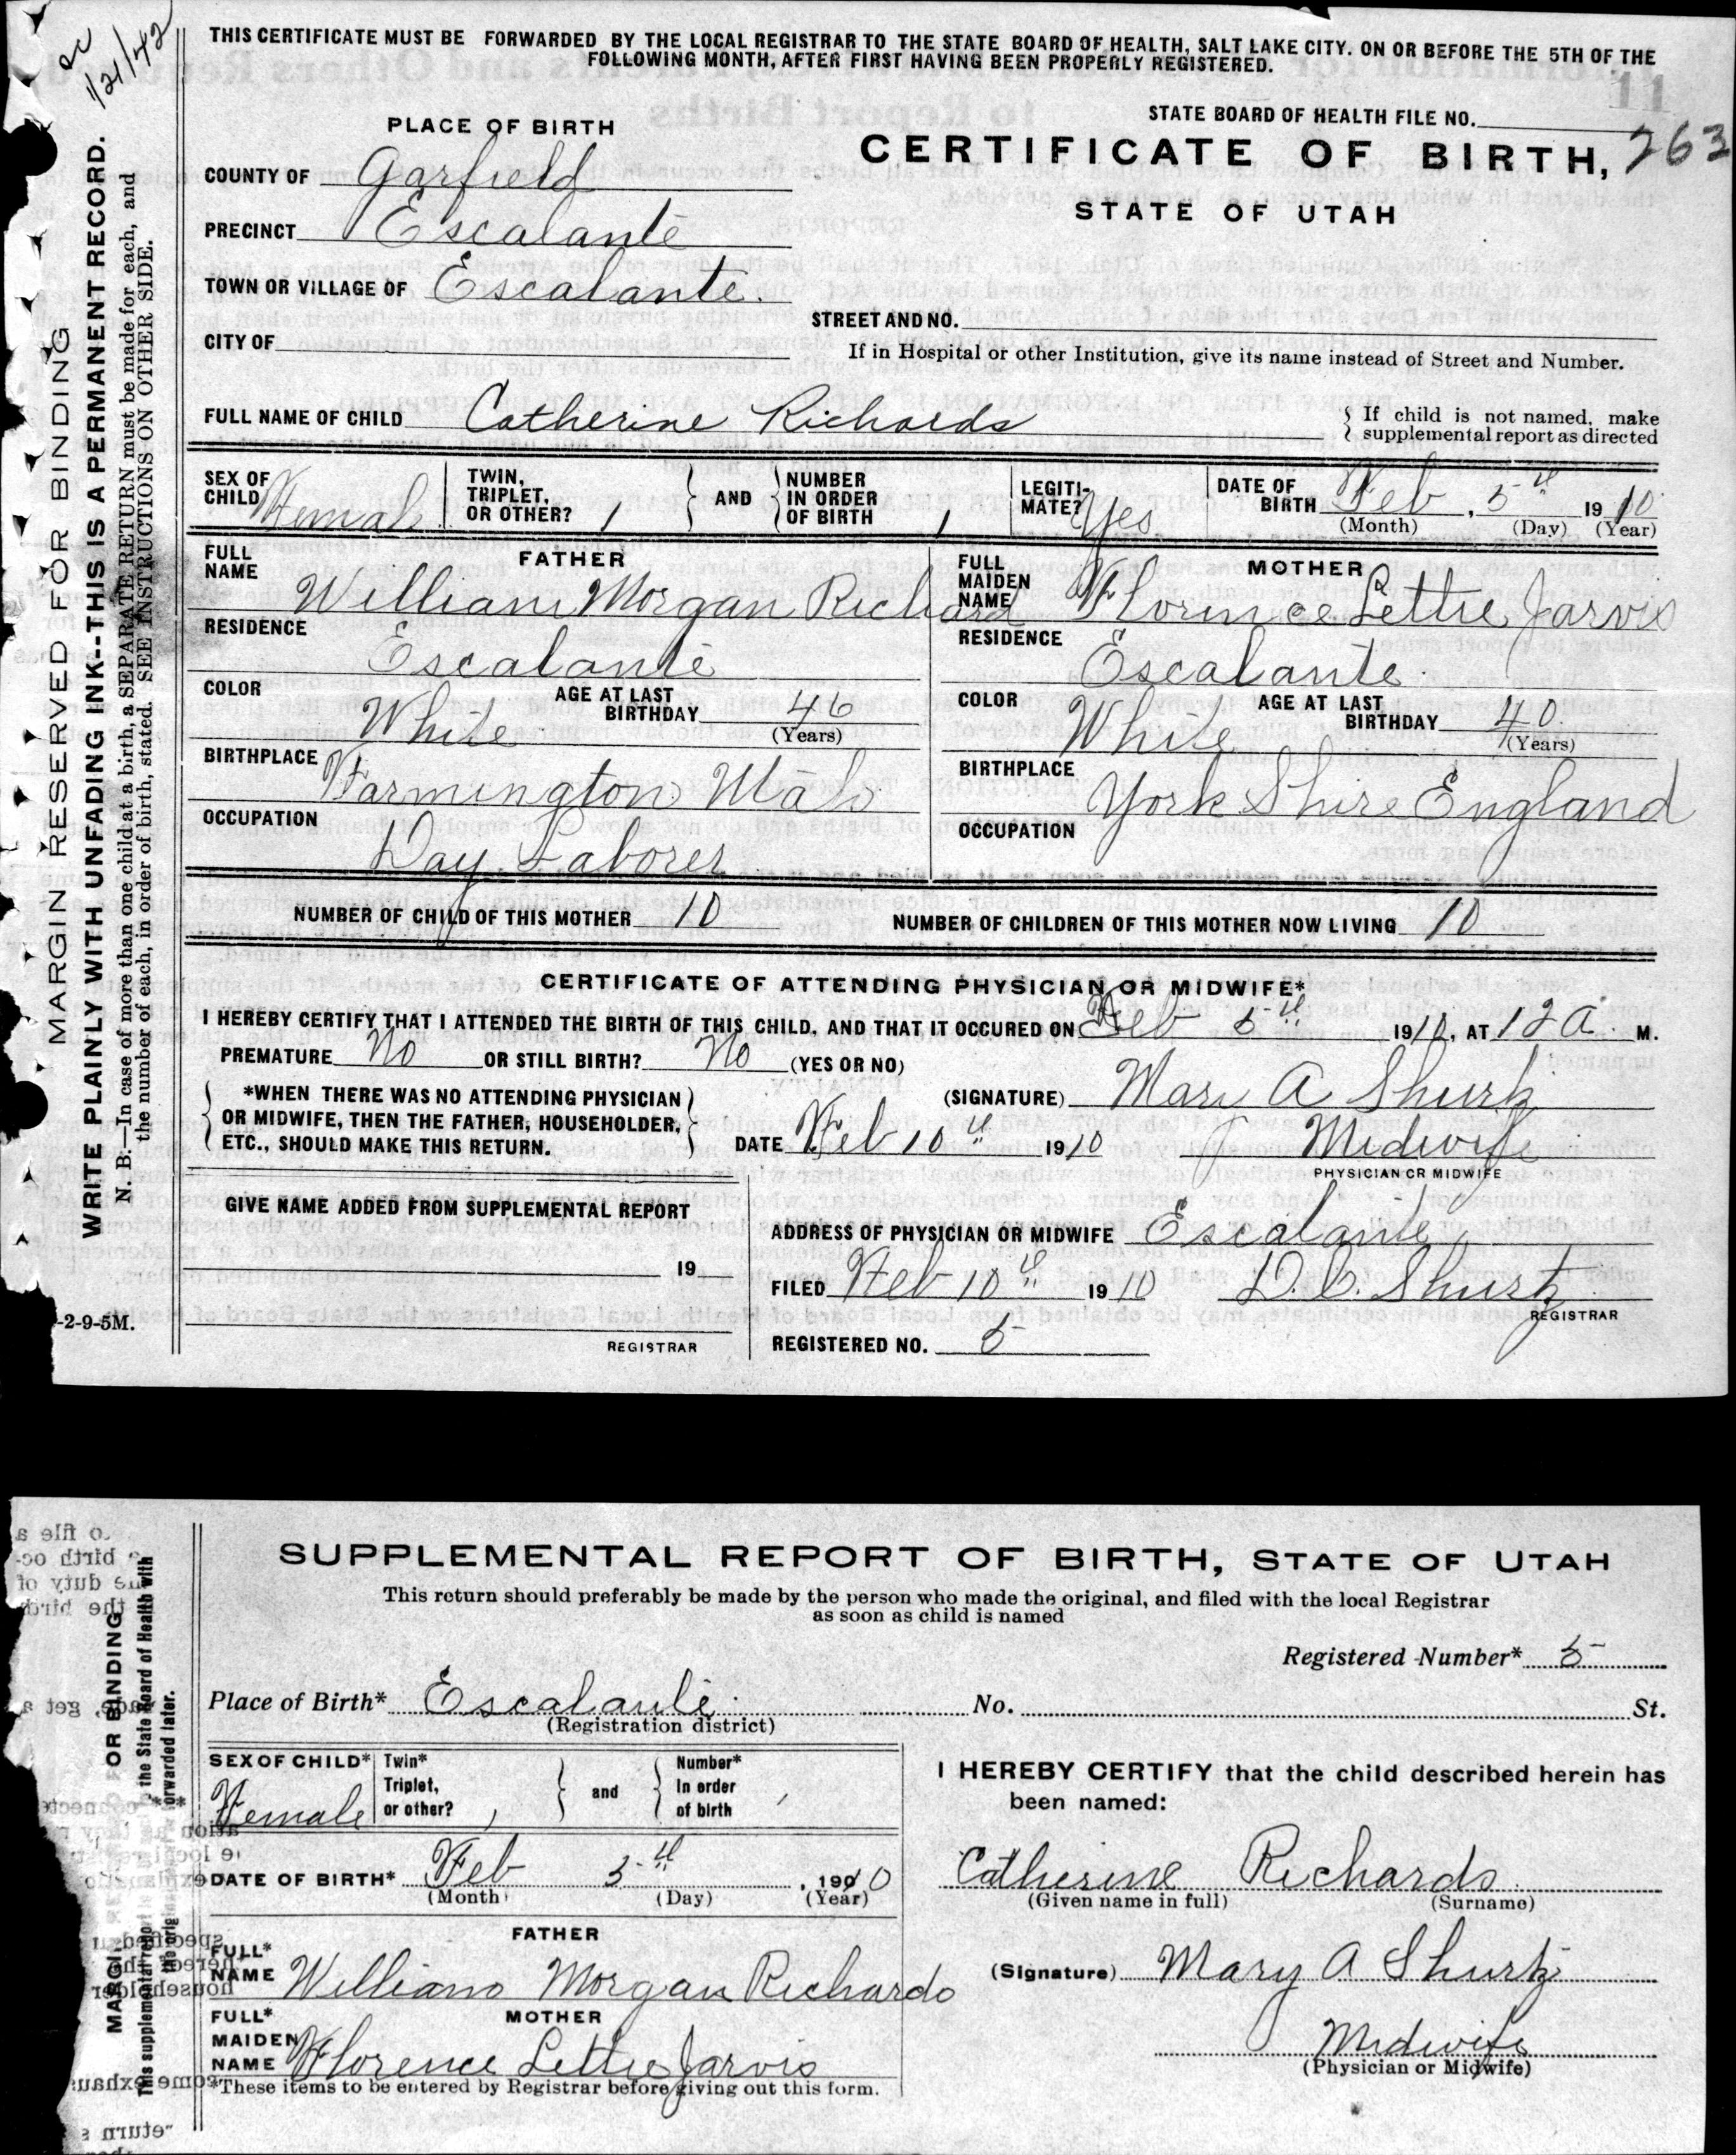 ac
1/21/42
THIS CERTIFICATE MUST BE FORWARDED BY THE LOCAL REGISTRAR TO THE STATE BOARD OF HEALTH, SALT LAKE CITY. ON OR BEFORE THE 5TH OF THE
FOLLOWING MONTH, AFTER FIRST HAVING BEEN PROPERLY REGISTERED.
11
STATE BOARD OF HEALTH FILE NO.
263
PLACE OF BIRTH
CERTIFICATE OF BIRTH,
STATE OF UTAH
COUNTY OF Garfield
PRECINCT Escalante
TOWN OR VILLAGE OF Escalante.
CITY OF
STREET AND NO.
If in Hospital or other Institution, give its name instead of Street and Number.
FULL NAME OF CHILD Catherine Richards
If child is not named, make
supplemental report as directed
SEX OF CHILD Female
TWIN, TRIPLET, OR OTHER? 1 AND NUMBER IN ORDER OF BIRTH 1
LEGITIMATE? Yes
DATE OF BIRTH Feb, 5th 1910
(Month) (Day) (Year)
FATHER
FULL NAME William Morgan Richard
RESIDENCE Escalante
COLOR White AGE AT LAST BIRTHDAY 46
(Years)
BIRTHPLACE Farmington Utah
OCCUPATION Day Laborer
MOTHER
FULL MAIDEN NAME Florince Lettie Jarvis
RESIDENCE Escalante.
COLOR White AGE AT LAST BIRTHDAY 40
(Years)
BIRTHPLACE York Shire England
OCCUPATION
NUMBER OF CHILD OF THIS MOTHER 10 NUMBER OF CHILDREN OF THIS MOTHER NOW LIVING 10
CERTIFICATE OF ATTENDING PHYSICIAN OR MIDWIFE*
I HEREBY CERTIFY THAT I ATTENDED THE BIRTH OF THIS CHILD, AND THAT IT OCCURED ON Feb 5th 1910, AT 12 A. M.
PREMATURE No OR STILL BIRTH? No (YES OR NO)
*WHEN THERE WAS NO ATTENDING PHYSICIAN
OR MIDWIFE, THEN THE FATHER, HOUSEHOLDER,
ETC., SHOULD MAKE THIS RETURN.
(SIGNATURE) Mary A Shurtz
DATE Feb 10th 1910 Midwife
PHYSICIAN OR MIDWIFE
GIVE NAME ADDED FROM SUPPLEMENTAL REPORT
19
REGISTRAR
ADDRESS OF PHYSICIAN OR MIDWIFE Escalante
FILED Feb 10th 1910 D.C. Shurtz
REGISTRAR
REGISTERED NO. 5
MARGIN RESERVED FOR BINDING
WRITE PLAINLY WITH UNFADING INK--THIS IS A PERMANENT RECORD.
N. B.—In case of more than one child at a birth, a SEPARATE RETURN must be made for each, and
the number of each, in order of birth, stated. SEE INSTRUCTIONS ON OTHER SIDE.
-2-9-5M.
SUPPLEMENTAL REPORT OF BIRTH, STATE OF UTAH
This return should preferably be made by the person who made the original, and filed with the local Registrar
as soon as child is named
Registered Number* 5
Place of Birth* Escalante. No. St.
(Registration district)
SEX OF CHILD* Female
Twin* Triplet, or other? and Number* In order of birth
DATE OF BIRTH* Feb 5th, 1910
(Month) (Day) (Year)
FATHER
FULL* NAME William Morgan Richards
MOTHER
FULL* MAIDEN NAME Florence Lettie Jarvis
*These items to be entered by Registrar before giving out this form.
I HEREBY CERTIFY that the child described herein has
been named:
Catherine Richards
(Given name in full) (Surname)
(Signature) Mary A Shurtz
Midwife
(Physician or Midwife)
OR BINDING